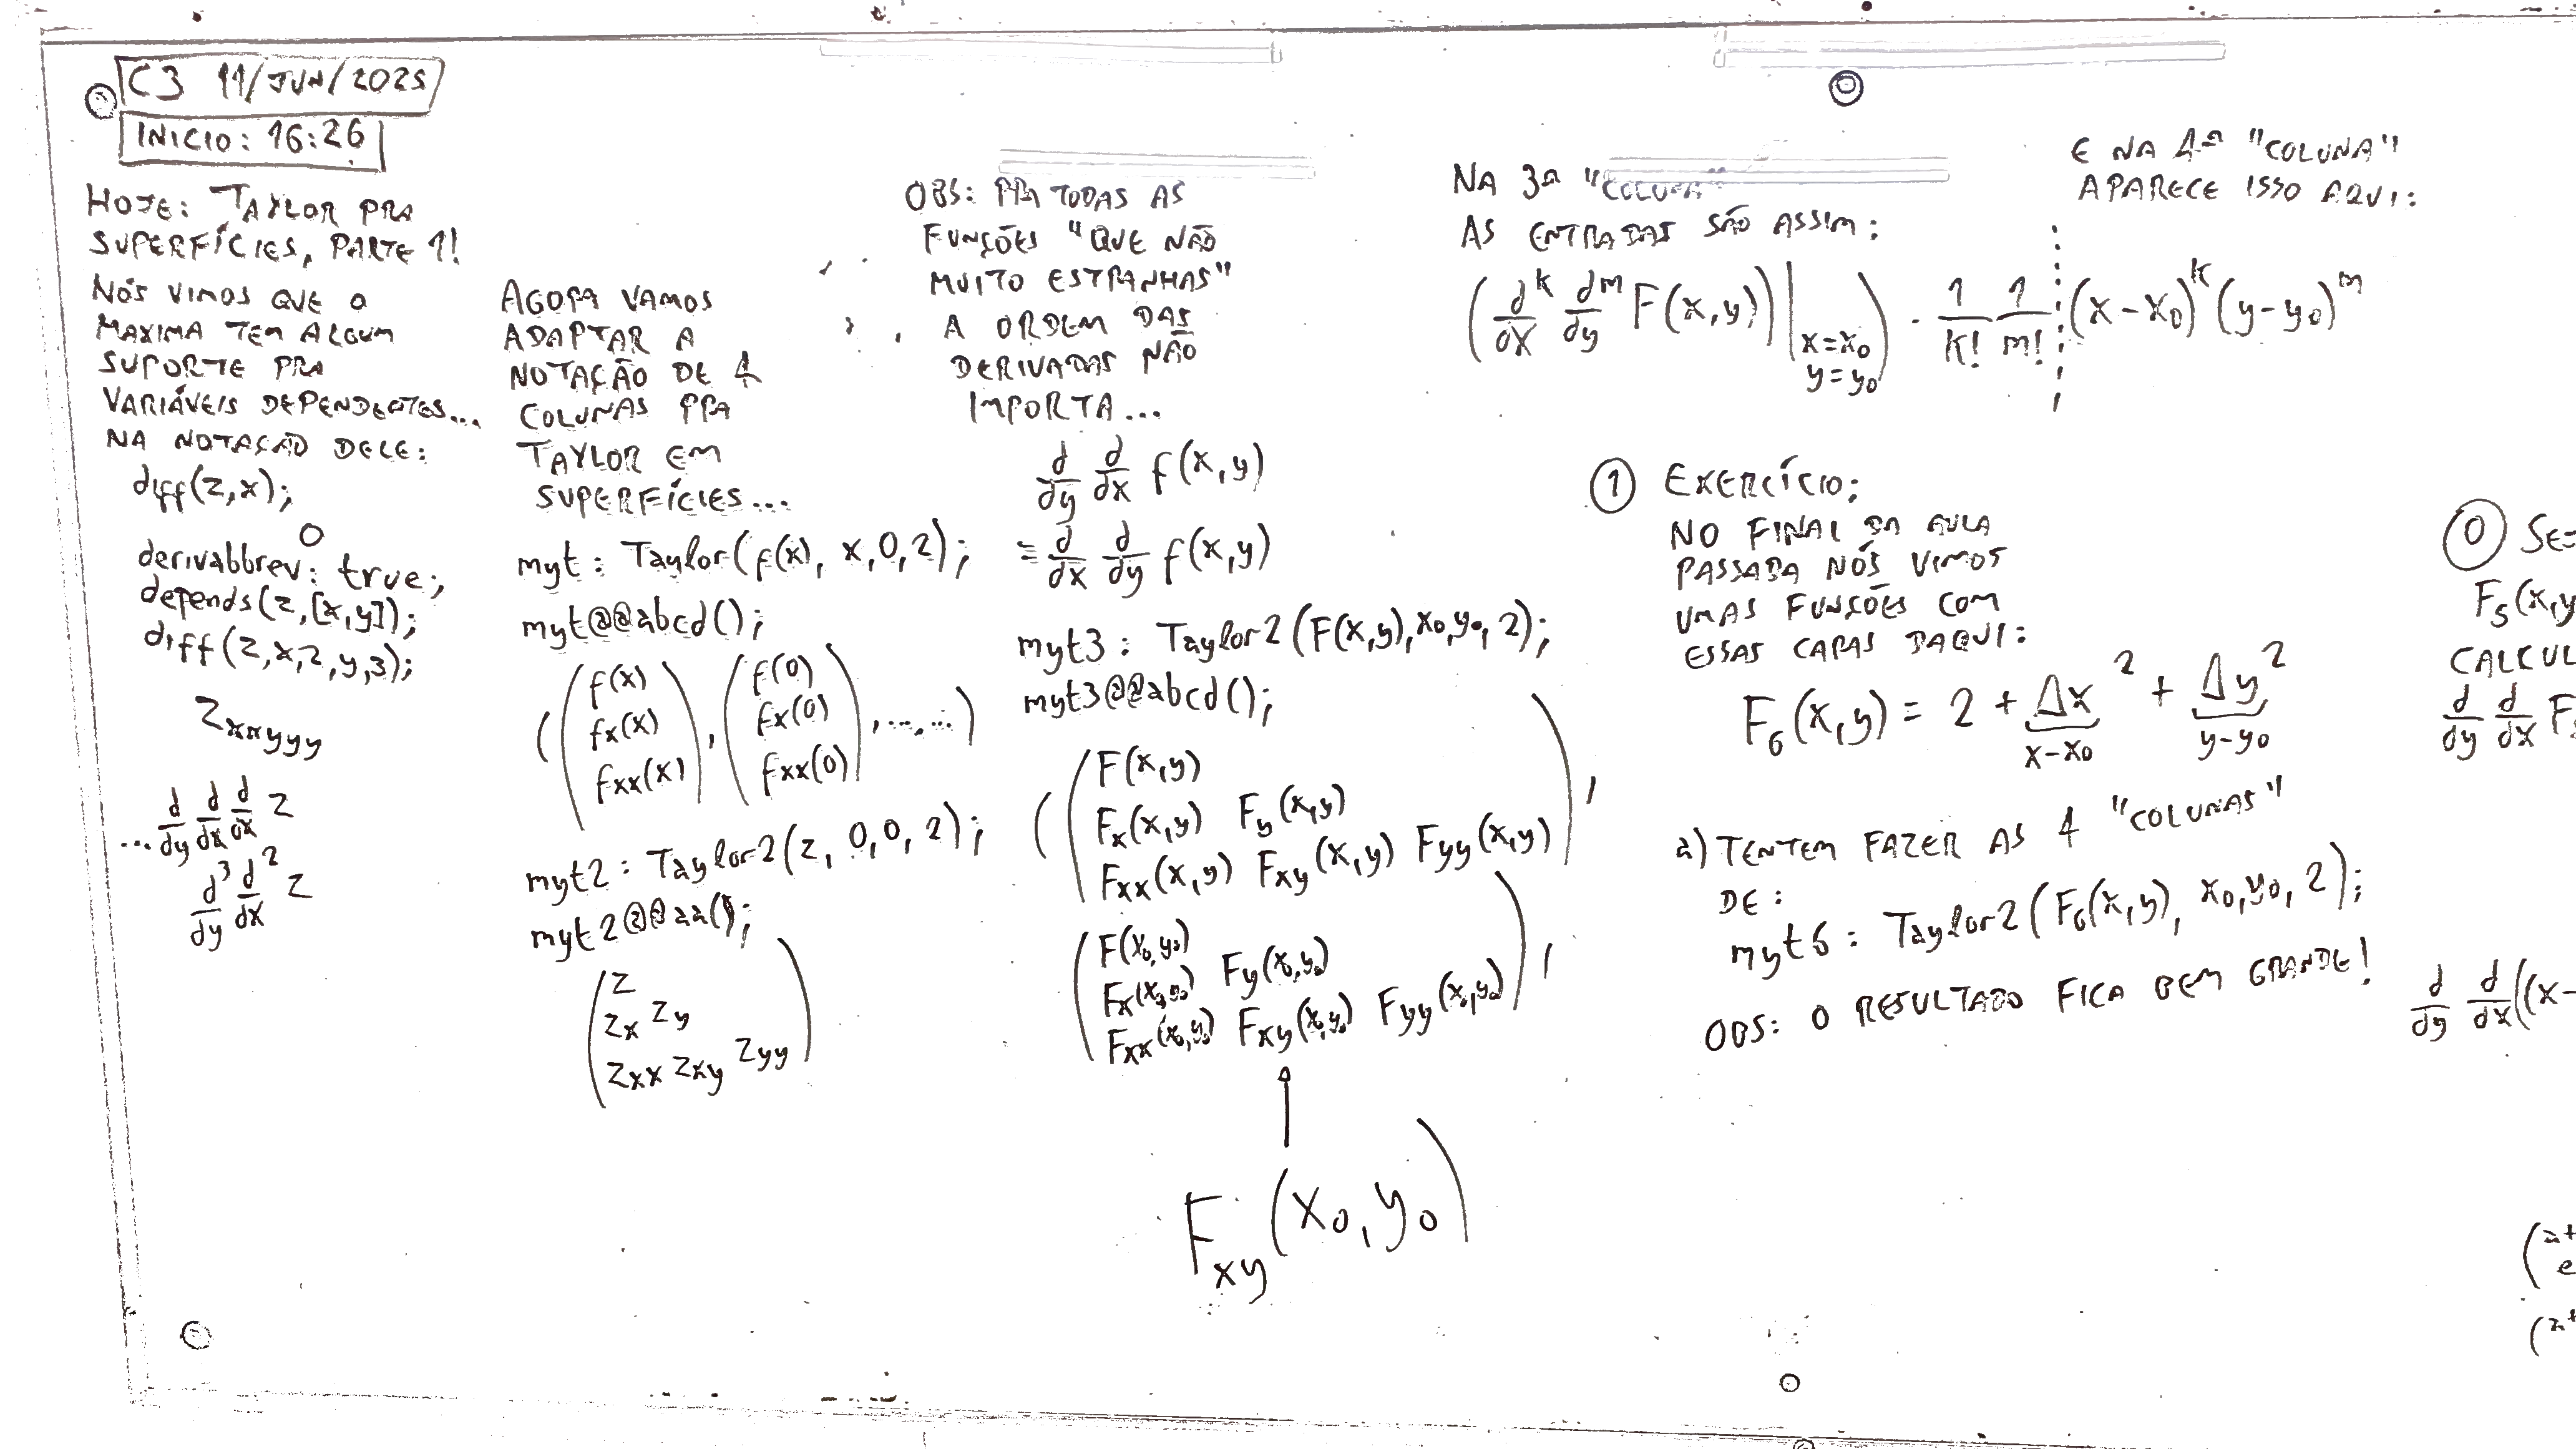 C3 11/JUN/2025
INICIO: 16:26
HOJE: TAYLOR PRA
SUPERFÍCIES, PARTE 1!
NÓS VIMOS QUE O
MAXIMA TEM ALGUM
SUPORTE PRA
VARIÁVEIS DEPENDENTES...
NA NOTAÇÃO DELE:
diff(z,x);
0
derivabbrev: true;
depends(z,[x,y]);
diff(z,x,2,y,3);
z_xxyyy
... d/dy d/dx d/dx z
d/dy^3 d/dx^2 z
AGORA VAMOS
ADAPTAR A
NOTAÇÃO DE 4
COLUNAS PRA
TAYLOR EM
SUPERFÍCIES...
myt: Taylor(f(x), x,0,2);
myt@@abcd();
( ( f(x) ) , ( f(0) ) , ..., ... )
fx(x) fx(0)
fxx(x) fxx(0)
myt2: Taylor2(z, 0,0,2);
myt2@@aa();
( z
zx zy
zxx zxy zyy )
OBS: PRA TODAS AS
FUNÇÕES "QUE NÃO
MUITO ESTRANHAS"
A ORDEM DAS
DERIVADAS NÃO
IMPORTA...
d/dy d/dx f(x,y)
= d/dx d/dy f(x,y)
myt3: Taylor2(F(x,y),x0,y0,2);
myt3@@abcd();
( ( F(x,y)
Fx(x,y) Fy(x,y)
Fxx(x,y) Fxy(x,y) Fyy(x,y) ) ,
( F(x0,y0)
Fx(x0,y0) Fy(x0,y0)
Fxx(x0,y0) Fxy(x0,y0) Fyy(x0,y0) ) ,
F_xy(x0,y0)
NA 3ª "COLUNA"
AS ENTRADAS SÃO ASSIM:
( d/dx^k d/dy^m F(x,y)) | x=x0 y=y0 ) · 1/k! 1/m! (x-x0)^k (y-y0)^m
E NA 4ª "COLUNA"
APARECE ISSO AQUI:
1 EXERCÍCIO:
NO FINAL DA AULA
PASSADA NÓS VIMOS
UMAS FUNÇÕES COM
ESSAS CARAS DAQUI:
F6(x,y) = 2 + Δx^2 + Δy^2
x-x0 y-y0
a) TENTEM FAZER AS 4 "COLUNAS"
DE:
myt6: Taylor2(F6(x,y), x0,y0,2);
OBS: O RESULTADO FICA BEM GRANDE!
0 SE
F5(x,y
CALCUL
d/dy d/dx F
d/dy d/dx((x-